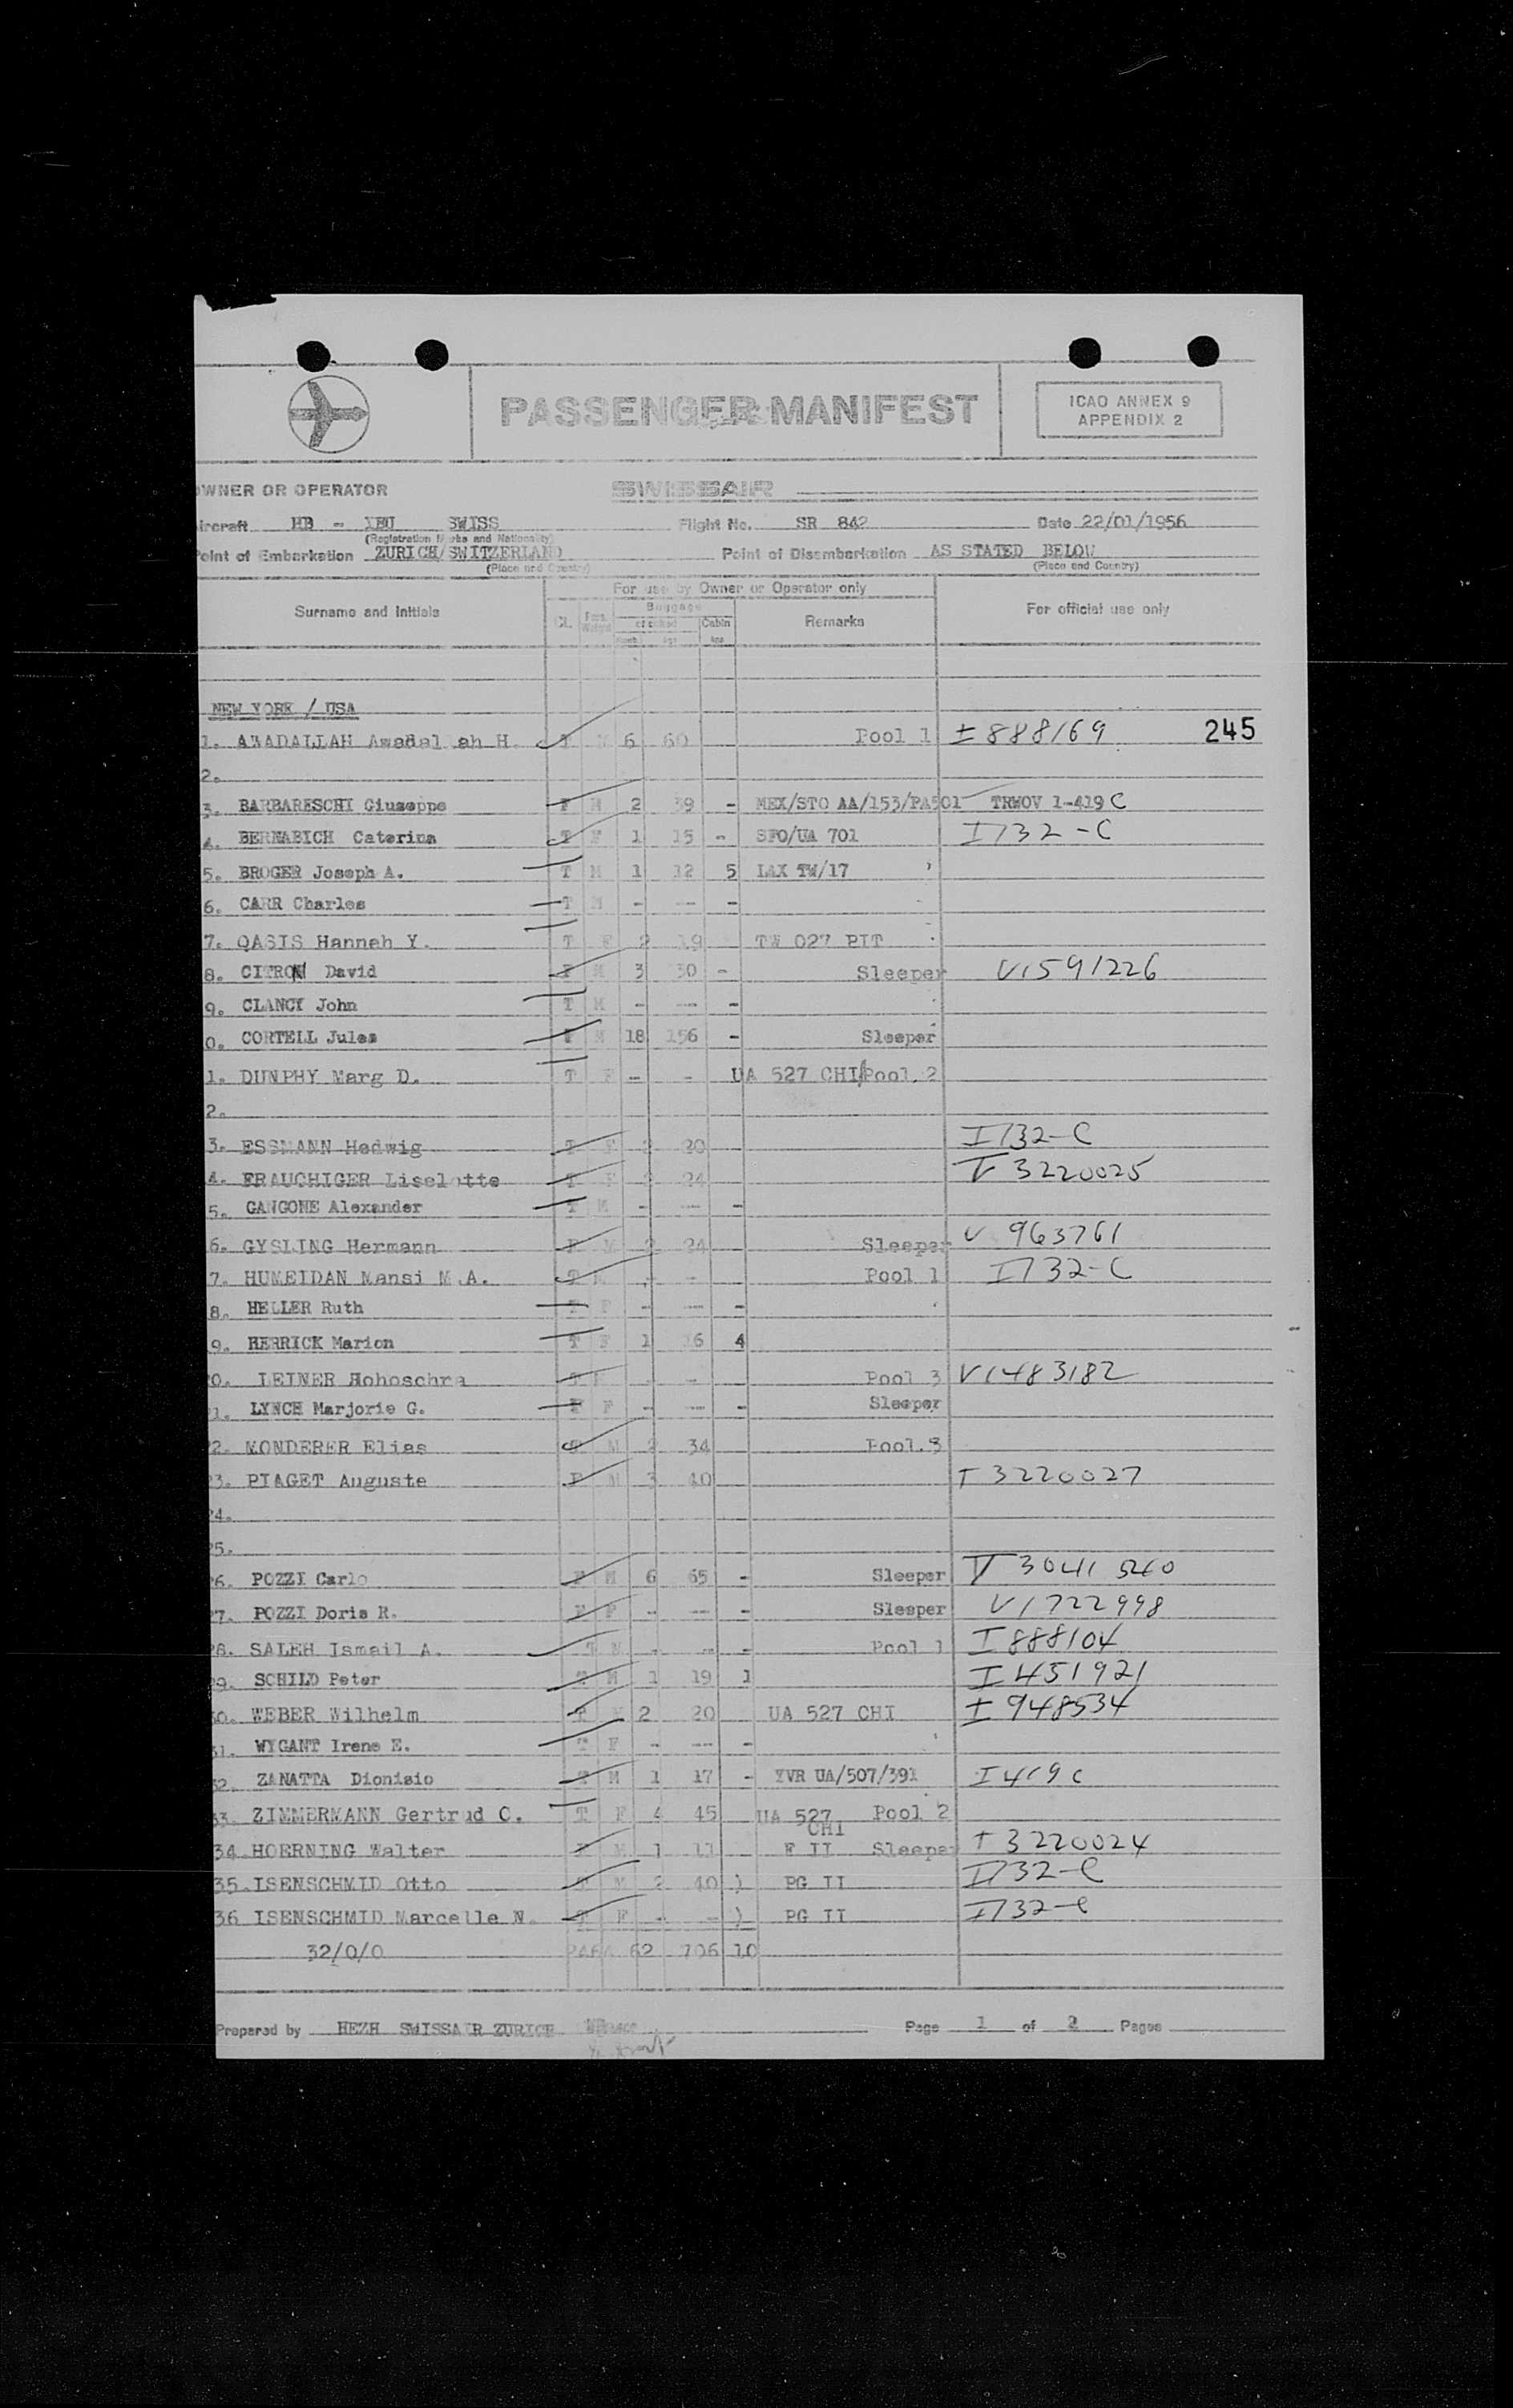 PASSENGER MANIFEST
ICAO ANNEX 9
APPENDIX 2
OWNER OR OPERATOR SWISSAIR
Aircraft HB - IBU SWISS Flight No. SR 842 Date 22/01/1956
(Registration Marks and Nationality)
Point of Embarkation ZURICH/SWITZERLAND Point of Disembarkation AS STATED BELOW
(Place and Country) (Place and Country)
For use by Owner or Operator only
Surname and Initials CL. Baggage Remarks For official use only
checked Cabin
NEW YORK / USA
1. AWADALLAH Awadallah H. T M 6 60 Pool 1 I 888169 245
2.
3. BARBARESCHI Giuseppe F M 2 39 - MEX/STO AA/153/PA501 TRWOV 1-419 C
4. BERNABICH Caterina T F 1 15 - SFO/UA 701 I 132-C
5. BROGER Joseph A. T M 1 12 5 LAX TW/17
6. CARR Charles T M - -- -
7. QASIS Hanneh Y. T F 2 19 TW 027 PIT
8. CITRON David F M 3 30 - Sleeper V1591226
9. CLANCY John T M - --- -
0. CORTELL Jules F M 18 156 - Sleeper
1. DUNPHY Marg D. T F - - UA 527 CHI/Pool 2
2.
3. ESSMANN Hedwig T F 2 20 I 132-C
4. FRAUCHIGER Liselotte T F 2 24 V 3220025
5. GANGONE Alexander T M - --- -
6. GYSLING Hermann F M 2 24 Sleeper V 963761
7. HUMEIDAN Mansi M.A. T M - - Pool 1 I 132-C
8. HELLER Ruth T F - --- -
9. HERRICK Marion T F 1 16 4
0. LEINER Hohoschra - - Pool 3 V1483182
1. LYNCH Marjorie G. F F - --- - Sleeper
2. MONDERER Elias T M 2 34 Pool.3
23. PIAGET Auguste F M 3 40 T 3220027
24.
25.
26. POZZI Carlo F M 6 65 - Sleeper V 3041540
27. POZZI Doris R. F F -- --- - Sleeper V1722998
28. SALEH Ismail A. T M - -- - Pool 1 I 888104
29. SCHILD Peter T M 1 19 1 I 451921
30. WEBER Wilhelm T M 2 20 UA 527 CHI I 948534
31. WYGANT Irene E. T F - --- -
32. ZANATTA Dionisio T M 1 17 - YVR UA/507/391 I 419 C
33. ZIMMERMANN Gertrud C. T F 4 45 UA 527 Pool 2
CHI
34. HOERNING Walter F M 1 11 F II Sleeper T 3220024
35. ISENSCHMID Otto T M 2 40 ) PG II I 132-C
36 ISENSCHMID Marcelle N. T F - - ) PG II I 132-C
32/0/0 62 706 10
Prepared by HEZH SWISSAIR ZURICH Page 1 of 2 Pages